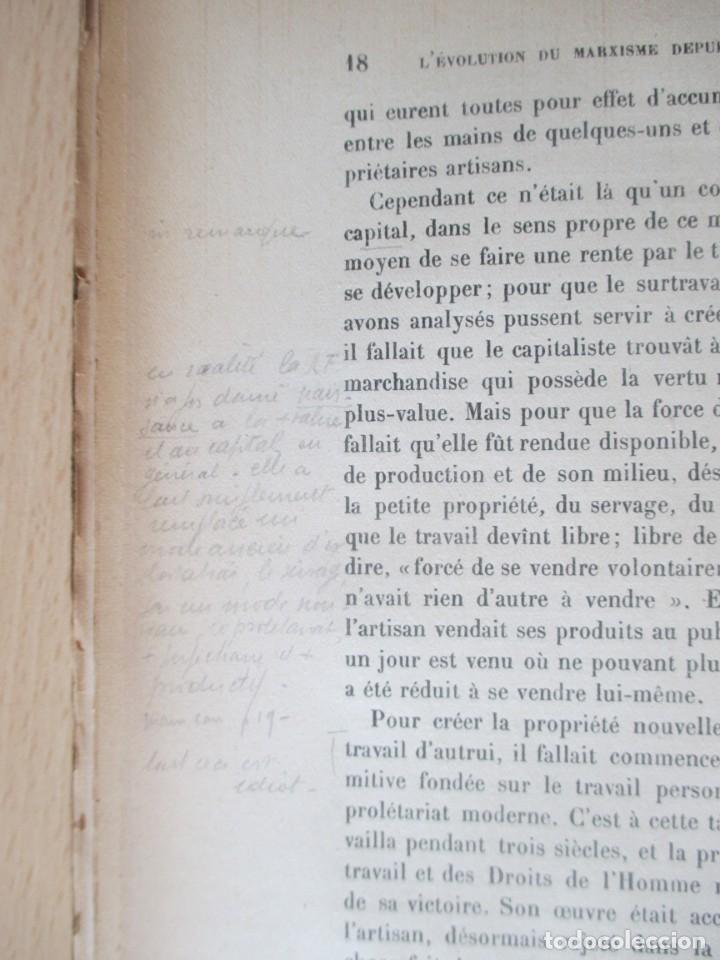 18 L'ÉVOLUTION DU MARXISME DEPU
qui eurent toutes pour effet d'accum
entre les mains de quelques-uns et
priétaires artisans.
Cependant ce n'était là qu'un co
capital, dans le sens propre de ce m
moyen de se faire une rente par le t
se développer; pour que le surtrava
avons analysés pussent servir à crée
il fallait que le capitaliste trouvât à
marchandise qui possède la vertu
plus-value. Mais pour que la force d
fallait qu'elle fût rendue disponible,
de production et de son milieu, dés
la petite propriété, du servage, du
que le travail devînt libre; libre de
dire, « forcé de se vendre volontairem
n'avait rien d'autre à vendre ». E
l'artisan vendait ses produits au pub
un jour est venu où ne pouvant plu
a été réduit à se vendre lui-même.
Pour créer la propriété nouvelle
travail d'autrui, il fallait commence
mitive fondée sur le travail person
prolétariat moderne. C'est à cette ta
vailla pendant trois siècles, et la pr
travail et des Droits de l'Homme
de sa victoire. Son œuvre était acc
l'artisan, désormais dans la
remarque
en réalité la RF
n'a pas donné nais
sance à la + value
et au capital en
général. elle a
tout simplement
remplacé un
mode ancien d'
le servag
un mode nou
veau, le prolétariat
+ et +
productif.
p 19 -
tout ceci est
idiot.
todocoleccion.net